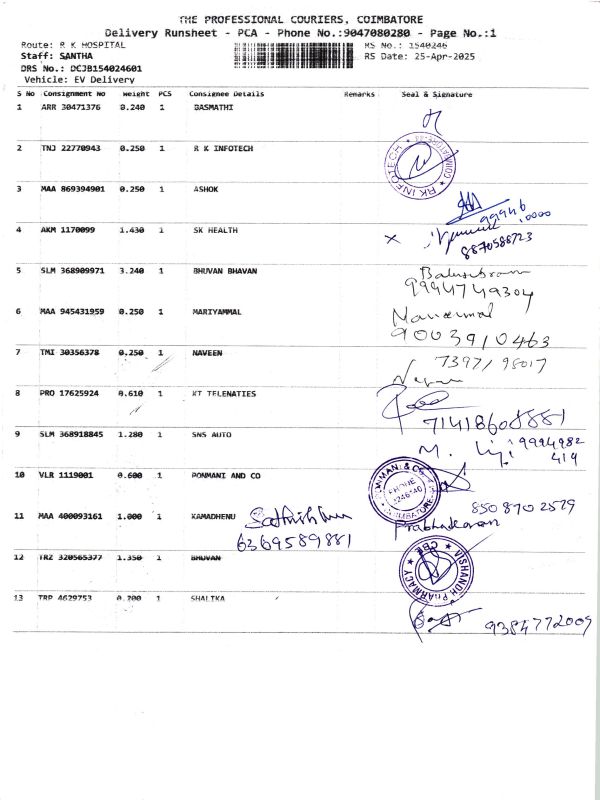 THE PROFESSIONAL COURIERS, COIMBATORE
Delivery Runsheet - PCA - Phone No.:9047080280 - Page No.:1
Route: R K HOSPITAL RS No.: 1540246
Staff: SANTHA RS Date: 25-Apr-2025
DRS No.: DCJB154024601
Vehicle: EV Delivery
S No Consignment No Weight PCS Consignee Details Remarks Seal & Signature
1 ARR 30471376 0.240 1 BASMATHI
2 TNJ 22770943 0.250 1 R K INFOTECH
RK INFOTECH
3 MAA 869394901 0.250 1 ASHOK
99946
4 AKM 1170099 1.430 1 SK HEALTH
8870588723
5 SLM 368909971 3.240 1 BHUVAN BHAVAN
9944749304
6 MAA 945431959 0.250 1 MARIYAMMAL
9003910463
7 TMI 30356378 0.250 1 NAVEEN
73971 98017
8 PRO 17625924 0.610 1 KT TELENATIES
9 SLM 368918845 1.280 1 SNS AUTO
9994982
419
10 VLR 1119001 0.600 1 PONMANI AND CO
PHONE
COIMBATORE
850 870 2579
11 MAA 400093161 1.000 1 KAMADHENU
Prabhakaran
6369589881
12 TRZ 320565377 1.350 1 BHUVAN
VISHANTH PHARMACY CBE
13 TRP 4629753 0.200 1 SHALIKA
9384772009